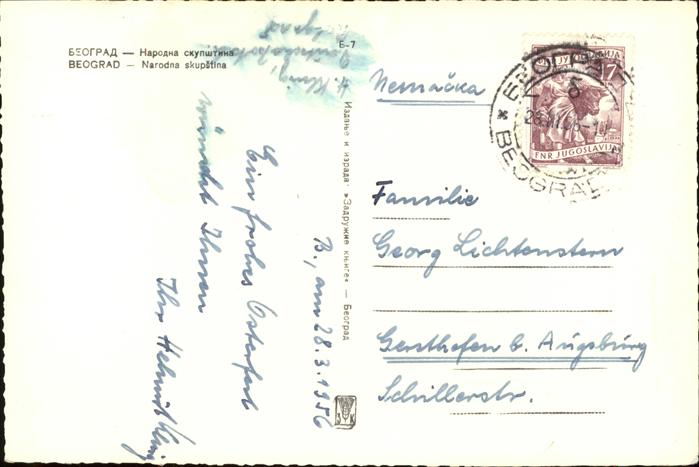 БЕОГРАД — Народна скупштина
BEOGRAD — Narodna skupština
Б-7
H. König,
Beograd
B., am 28.3.1956
Ein frohes Osterfest
wünscht Ihnen
Ihr Helmut König
Издање и израда: »Задружне књиге« — Београд
ЗК
Nemačka
Familie
Georg Lichtenstern
Gersthofen b. Augsburg
Schillerstr.
ЈУГОСЛАВИЈА
17
FNR JUGOSLAVIJA
БЕОГРАД
6
BEOGRAD